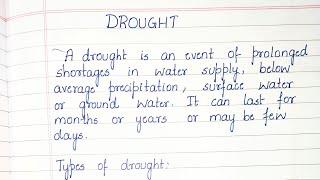 DROUGHT
A drought is an event of prolonged
shortages in water supply, below
average precipitation, surface water
or ground water. It can last for
months or years or may be few
days.
Types of drought: